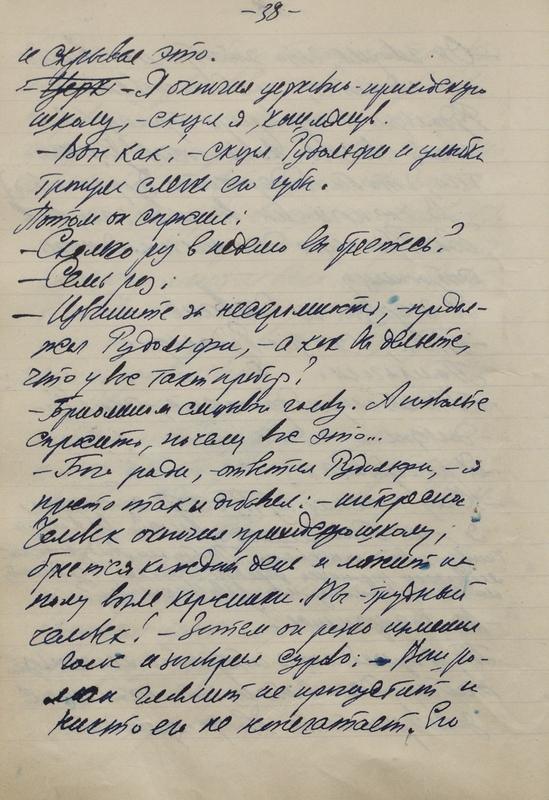 -38-
и скрывая это.
- Церк - Я окончил церковно-приходскую
школу, - сказал я, кашлянув.
- Вон как! - сказал Рудольфи и улыбка
тронула слегка его губы.
Потом он спросил:
- Сколько раз в неделю вы бреетесь?
- Семь раз.
- Извините за нескромность, - продол-
жал Рудольфи, - а как вы делаете,
что у вас такой пробор?
- Бриолином смазываю голову. А позвольте
спросить, почему все это...
- Бога ради, - ответил Рудольфи, - я
просто так и добавил: - интересно.
Человек окончил приходскую школу,
бреется каждый день и лежит на
полу возле керосинки. Вы - трудный
человек! - Затем он резко изменил
голос и заговорил сурово: - Ваш ро-
ман Главлит не пропустит и
никто его не напечатает. Его